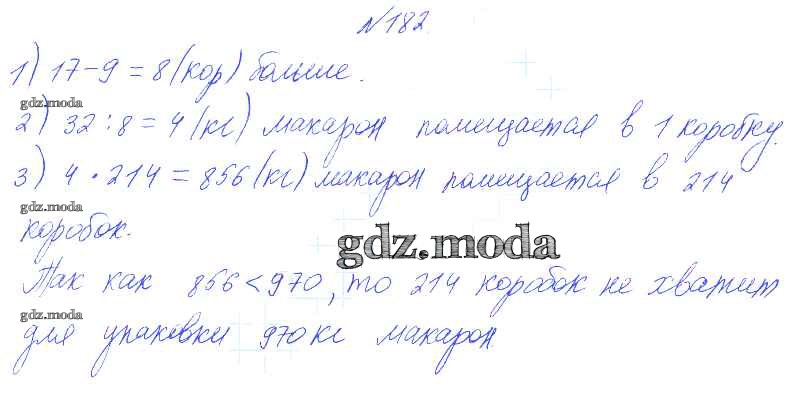 №182.
1) 17-9=8(кор) больше.
gdz.moda
2) 32:8=4(кг) макарон помещается в 1 коробку.
3) 4·214=856(кг) макарон помещается в 214
gdz.moda
коробок.
gdz.moda
Так как 856<970, то 214 коробок не хватит
gdz.moda
для упаковки 970кг макарон.